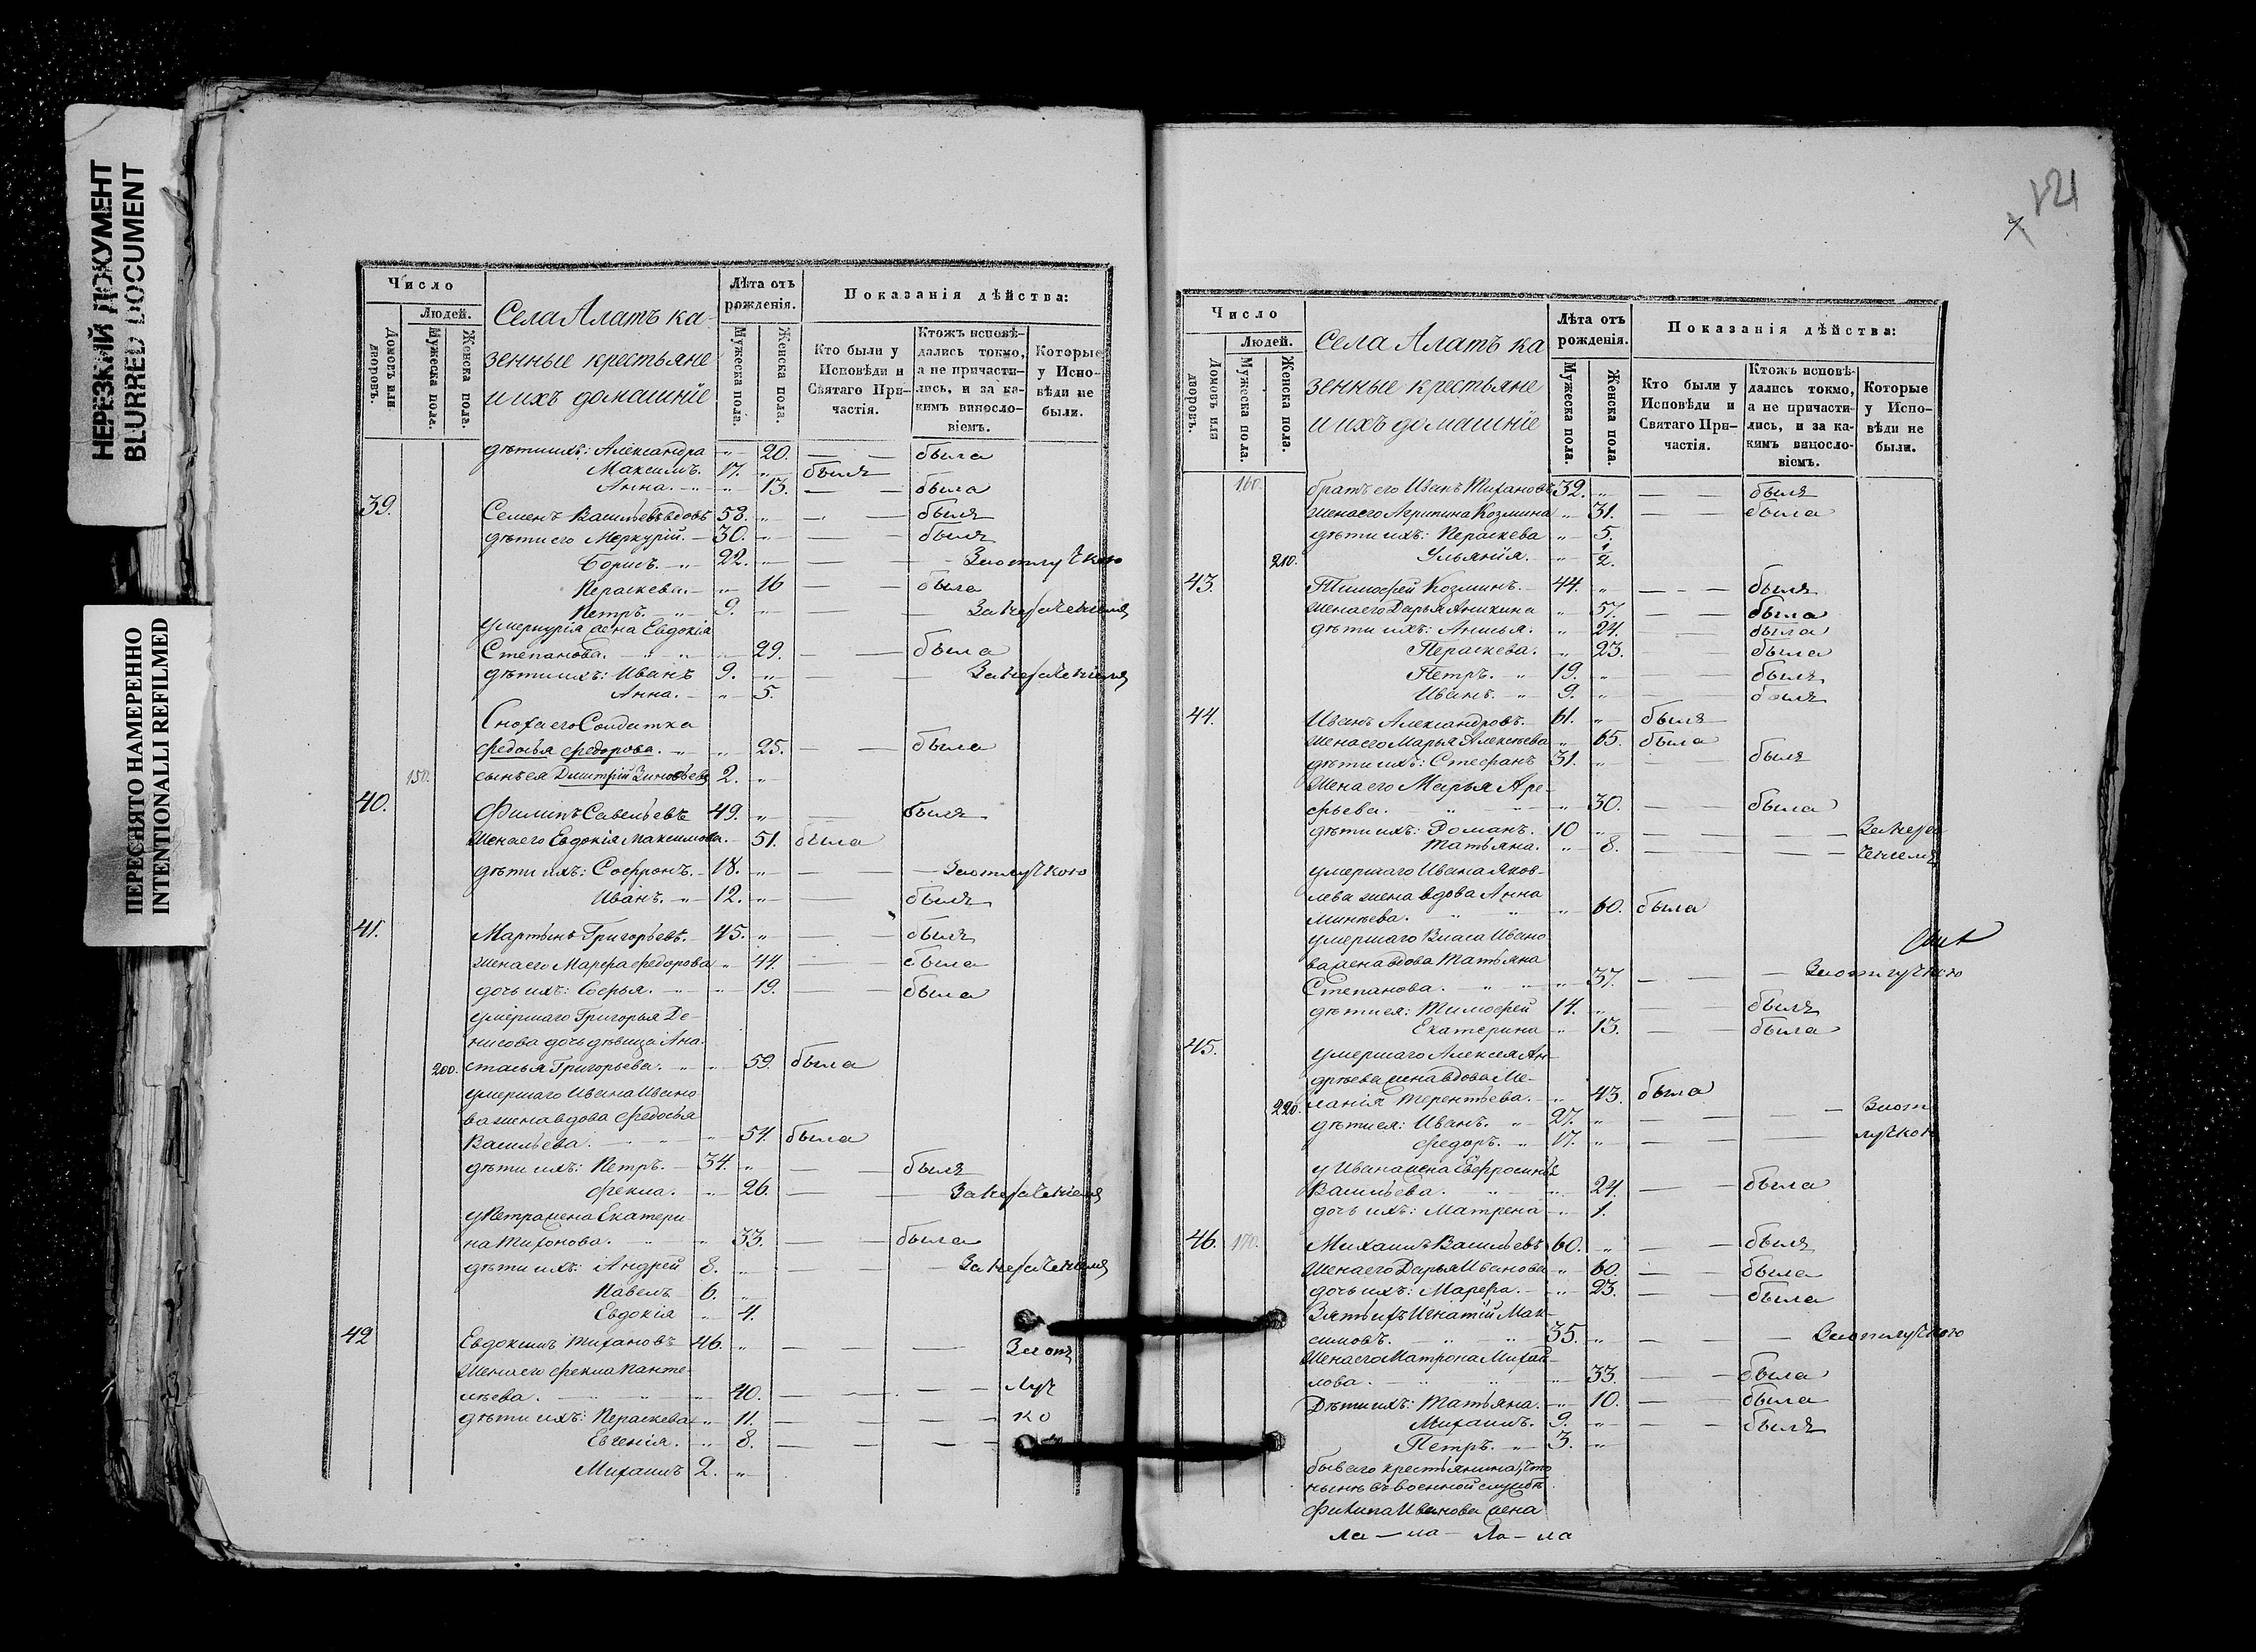 НЕРЕЗКИЙ ДОКУМЕНТ
BLURRED DOCUMENT
ПЕРЕСНЯТО НАМЕРЕННО
INTENTIONALLI REFILMED
Число
Людей.
Домовъ или дворовъ.
Мужеска пола.
Женска пола.
Села Алатъ ка-
зенные крестьяне
и ихъ домашніе
Лѣта отъ рожденія.
Мужеска пола.
Женска пола.
Показанія дѣйства:
Кто были у Исповѣди и Святаго Причастія.
Ктожъ исповѣ-
дались токмо,
а не причасти-
лись, и за ка-
кимъ винословіемъ.
Которые у Испо-
вѣди не были.
дѣти ихъ: Александра — „ — 20. — — была
Максимъ. 17. „ былъ
Анна. — „ — 13. — — была
39. Семенъ Васильевъ вдовъ 58. „ — — былъ
дѣти его Меркурій. — 30. „ — — былъ
Борисъ. — „ 22. „ — — За отлучкою
Пераскева. — „ 16 — — была
Петръ. — „ 9. „ — — За нераченіемъ
у Меркурія жена Евдокія
Степанова. — „ „ — 29. — — была
дѣти ихъ: Иванъ 9. „ — — За нераченіемъ
Анна. — „ — 5.
Сноха его Солдатка
Федосья Федорова. — „ — 25. — — была
150. сынъ ея Дмитрій Зиновьевъ 2. „
40. Филипъ Савельевъ 49. „ — былъ
Жена его Евдокія Максимова. — 51. была
дѣти ихъ: Софронъ. — 18. „ — — За отлучкою
Иванъ. — „ — 12. „ — былъ
41. Мартынъ Григорьевъ. — 45. „ — — былъ
жена его Марфа Федорова „ — 44. — — была
дочь ихъ: Софья. — „ — „ — 19. — была
умершаго Григорья Де-
нисова дочь дѣвица Ана-
200. стасья Григорьева. — „ — „ — 59. была
умершаго Ивана Ивано-
ва жена вдова Федосья
Васильева. — „ — „ — 54. была
дѣти ихъ: Петръ. — 34. „ — — былъ
Фекла. — „ — 26. — — За нераченіемъ
у Петра жена Екатери-
на Тиханова. — „ — 33. — — была
дѣти ихъ: Андрей 8. „ — — За нераченіемъ
Павелъ — 6. „
Евдокія — „ — 4.
42 Евдокимъ Тихановъ 46. „ — — — За от
Жена его Фекла Панте-
лѣева. — „ — „ — 40. — — — луч
дѣти ихъ: Пераскева „ — 11. — — — ко
Евгенія. — „ — 8. — — —
Михаилъ 2. „
121
Число
Людей.
Домовъ или дворовъ.
Мужеска пола.
Женска пола.
Села Алатъ ка
зенные крестьяне
и ихъ домашніе
Лѣта отъ рожденія.
Мужеска пола.
Женска пола.
Показанія дѣйства:
Кто были у Исповѣди и Святаго Причастія.
Ктожъ исповѣ-
дались токмо,
а не причасти-
лись, и за ка-
кимъ винословіемъ.
Которые у Испо-
вѣди не были.
160. братъ его Иванъ Тихановъ 32. „ — — былъ
жена его Агрипина Козмина „ — 31. — — была
дѣти ихъ: Пераскева „ — 5.
210. Ульянія. — „ — 1/2.
43. Тимофей Козминъ. — 44. „ — — былъ
жена его Дарья Аникина „ — 57. — — была
дѣти ихъ: Анисья. „ — 24. — — была
Пераскева. „ — 23. — — была
Петръ. — „ 19. „ — — былъ
Иванъ. — „ 9. „ — — былъ
44. Иванъ Александровъ. — 61. „ былъ
жена его Марья Алексѣева „ — 65. была
дѣти ихъ: Стефанъ 31. „ — — былъ
Жена его Марья Аре-
фьева. — „ — „ — 30. — — была
дѣти ихъ: Романъ. 10 „ — — — За нера-
Татьяна. „ — 8. — — — ченіемъ
умершаго Ивана Яков-
лева жена вдова Анна
Минѣева. — „ — „ — 60. была
умершаго Власа Ивано-
ва жена вдова Татьяна
Степанова. — „ — „ — 37. — — За отлучкою
дѣти ея: Тимофей 14. „ — — былъ
Екатерина „ — 13. — — была
45. умершаго Алексея Ан-
дрѣева жена вдова Ме-
220. ланія Терентьева. — „ — 43. была
дѣти ея: Иванъ. — „ 27. „ — — — За от
Федоръ. — „ 17. „ — — лучкою
у Ивана жена Евфросинья
Васильева. — „ — „ — 24. — — была
дочь ихъ: Матрена „ — 1.
46. 170. Михаилъ Васильевъ 60. „ — — былъ
Жена его Дарья Иванова „ — 60. — — была
дочь ихъ: Марфа. — „ — 23. — — была
Зять ихъ Игнатій Мак-
симовъ. — „ — „ 35. „ — — За отлучкою
Жена его Матрона Михай-
лова. — „ — „ — 33. — — была
Дѣти ихъ: Татьяна. „ — 10. — — была
Михаилъ. 9. „ — — былъ
Петръ. — „ 3. „
бывшаго крестьянина, что
нынѣ въ военной службѣ
Филипа Иванова жена